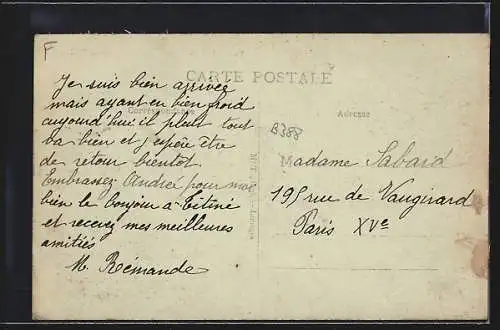 F
CARTE POSTALE
Correspondance
Adresse
Je suis bien arrivée
mais ayant eu bien froid
aujourd'hui il pleut tout
va bien et j'espère être
de retour bientôt
Embrassez André pour moi
bien le bonjour à Titine
et recevez mes meilleures
amitiés
M. Rémande
B388
Madame Sabard
195 rue de Vaugirard
Paris XVe